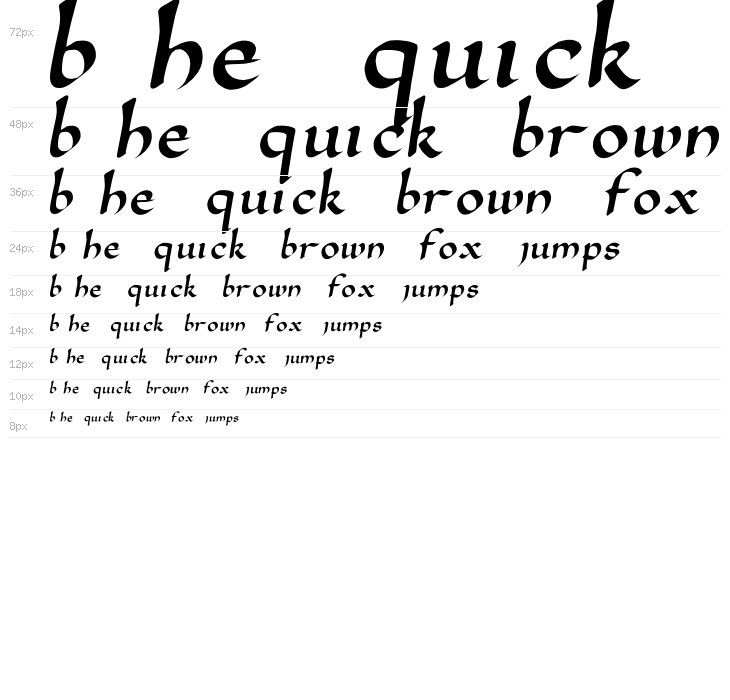 72px b he quıck
48px b he quıck brown
36px b he quıck brown fox
24px b he quıck brown fox ȷumps
18px b he quıck brown fox ȷumps
14px b he quıck brown fox ȷumps
12px b he quıck brown fox ȷumps
10px b he quıck brown fox ȷumps
8px b he quıck brown fox ȷumps